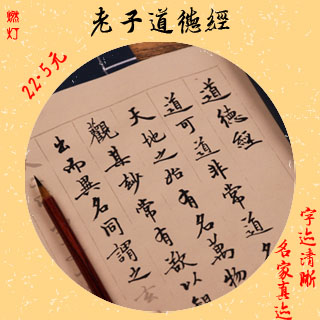 老子道德經
燃灯
22.5元
道德經
道可道非常道
天地之始有名萬物
觀其妙常有欲以
出而異名同謂之玄
字迹清晰
名家真迹